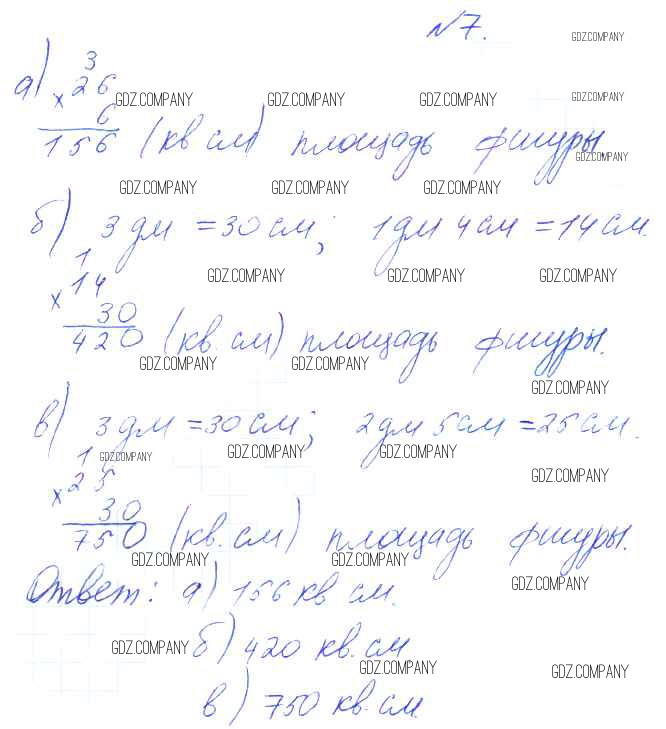 №7.
GDZ.COMPANY
а) 3
× 26
GDZ.COMPANY GDZ.COMPANY GDZ.COMPANY GDZ.COMPANY
6
156 (кв см) площадь фигуры.
GDZ.COMPANY
GDZ.COMPANY GDZ.COMPANY GDZ.COMPANY
б) 3 дм = 30 см; 1 дм 4 см = 14 см.
1
× 14
GDZ.COMPANY GDZ.COMPANY GDZ.COMPANY
30
420 (кв. см) площадь фигуры.
GDZ.COMPANY GDZ.COMPANY
GDZ.COMPANY
в) 3 дм = 30 см; 2 дм 5 см = 25 см.
1
GDZ.COMPANY GDZ.COMPANY GDZ.COMPANY
× 25
GDZ.COMPANY
30
750 (кв. см) площадь фигуры.
GDZ.COMPANY GDZ.COMPANY
GDZ.COMPANY
Ответ: а) 156 кв см.
GDZ.COMPANY б) 420 кв. см
GDZ.COMPANY GDZ.COMPANY
в) 750 кв. см.